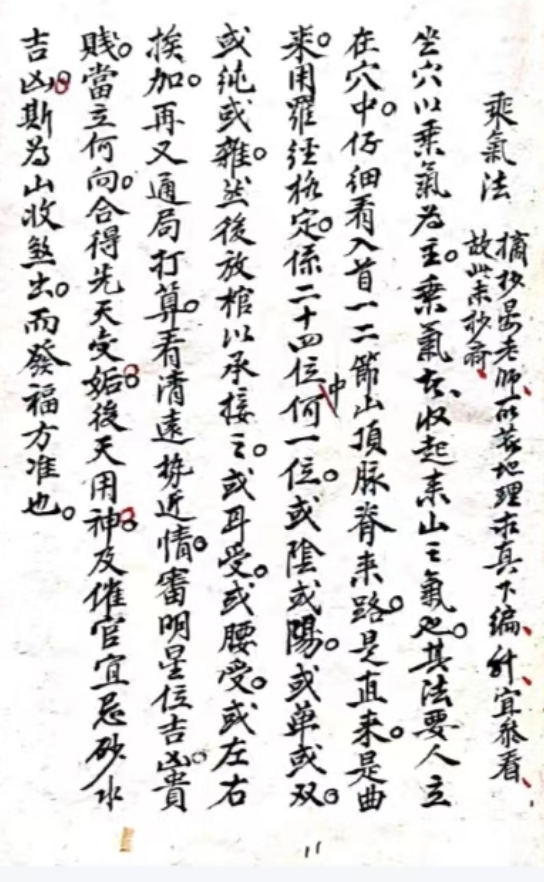 乘氣法
摘抄晏老師所著地理求真下編、針宜參看、
故此未抄齊、
坐穴以乘氣為主。乘氣者、收起來山之氣也。其法要人立
在穴中。仔細看入首一二節山頂脉脊來路。是直來。是曲
來。用羅經格定。係二十四位中何一位。或陰或陽。或单或双。
或純或雜。然後放棺以承接之。或耳受。或腰受。或左右
挨加。再又通局打算。看清遠势近情。審明星位吉凶。貴
賤。當立何向。合得先天受姤。後天用神。及催官宜忌砂水
吉凶。斯為山收煞出。而發福方准也。
11